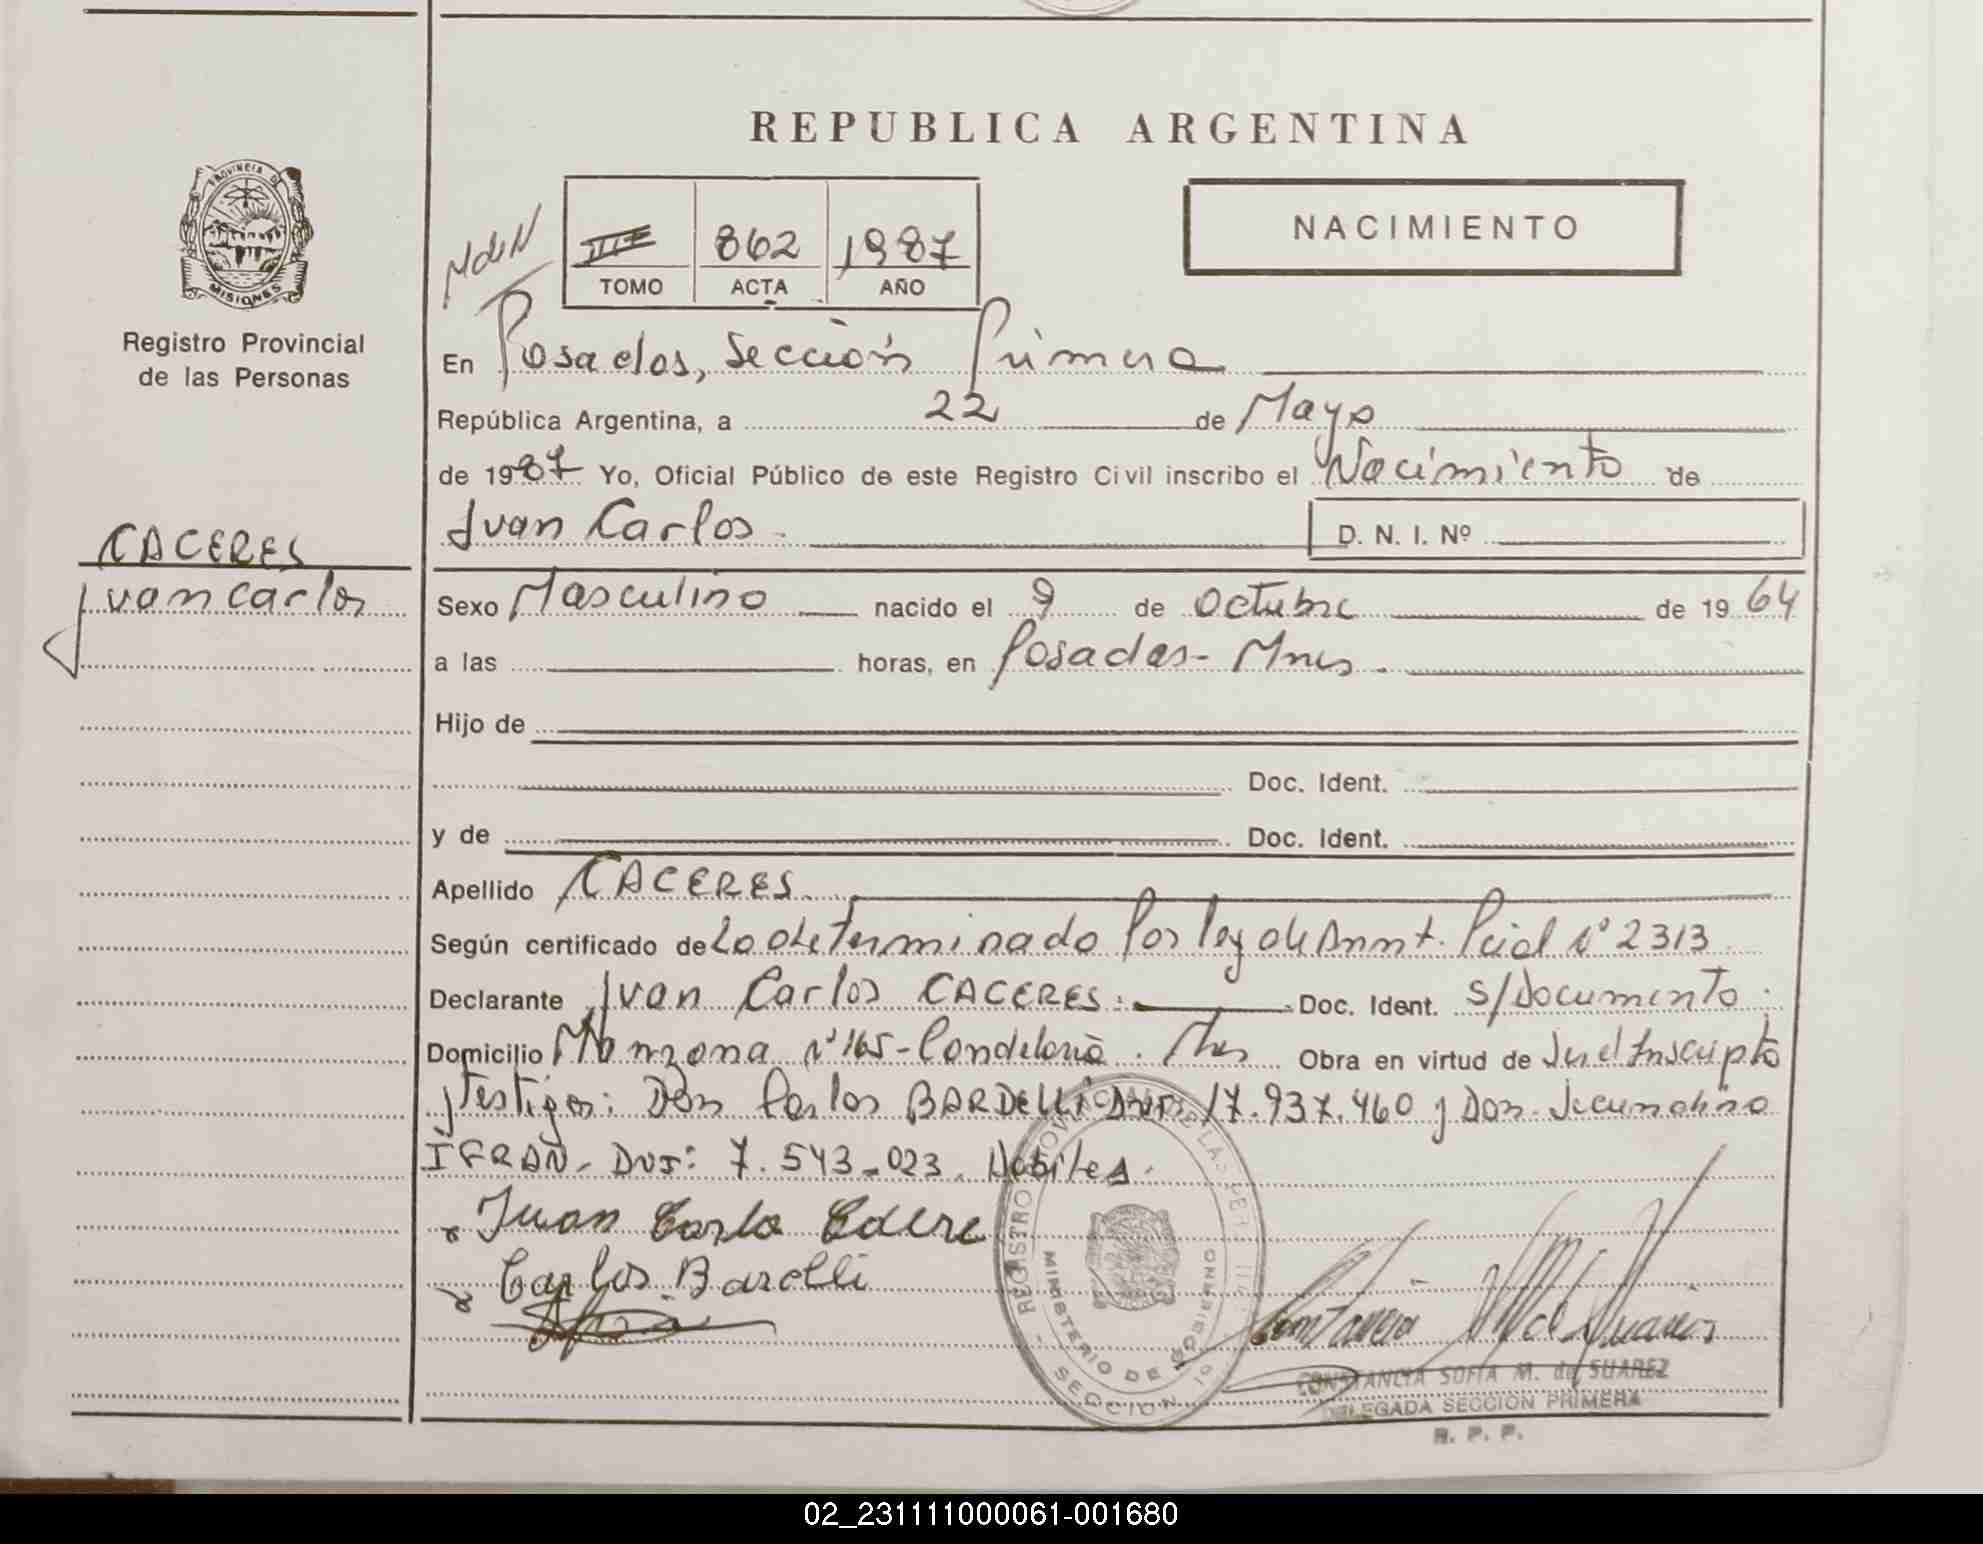 REPUBLICA ARGENTINA
PROVINCIA DE
MISIONES
Registro Provincial
de las Personas
NdeN
III 862 1987
TOMO ACTA AÑO
NACIMIENTO
En Posadas, Sección Primera
República Argentina, a 22 de Mayo
de 1987 Yo, Oficial Público de este Registro Civil inscribo el Nacimiento de
Juan Carlos D. N. I. Nº
CACERES
Juan Carlos
Sexo Masculino nacido el 9 de Octubre de 1964
a las horas, en Posadas - Mnes.
Hijo de
Doc. Ident.
y de Doc. Ident.
Apellido CACERES
Según certificado de Lo determinado Por ley de Amnt. Pcial Nº 2313
Declarante Juan Carlos CACERES. Doc. Ident. S/Documento.
Domicilio Manzana Nº 165 - Candelaria. Mnes Obra en virtud de Ser el Inscripto
Testigos: Don Carlos BARDELLI DNI: 17.937.460 y Don Secundino
IFRAN. DNI: 7.543.023. Habiles.
x Juan Carlo Cacere
x Carlos Barelli
REGISTRO PROVINCIAL DE LAS PERSONAS
MINISTERIO DE GOBIERNO
SECCION 1º
CONSTANCIA SOFIA M. de SUAREZ
DELEGADA SECCION PRIMERA
R. P. P.
02_231111000061-001680